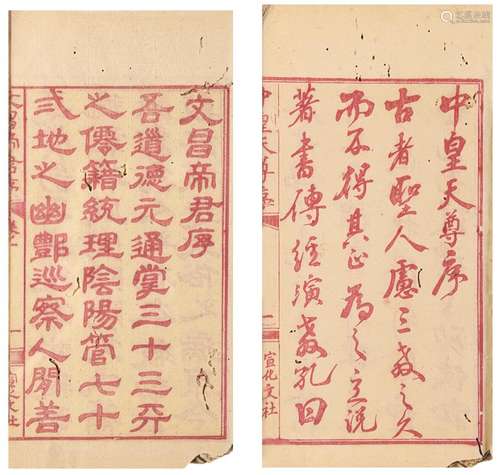 中皇天尊序
古者聖人慮三教之久
而不得其正為之立說
著書傳經演教乩曰
中皇天尊序
一
宣化文社
文昌帝君序
吾道德元通掌三十三天
之僊籍統理陰陽管七十
弍地之幽酆巡察人間善
文昌帝君序
一